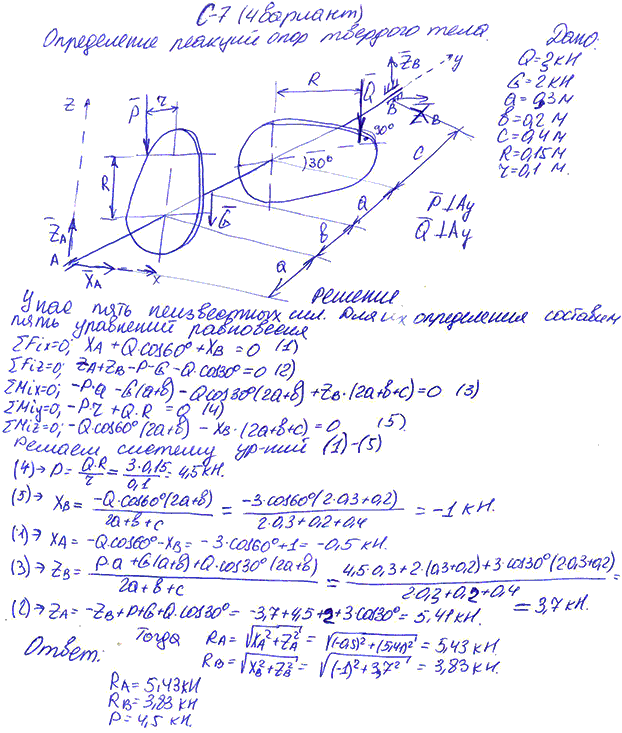 С-7 (4 вариант)
Определение реакций опор твердого тела.
Дано:
Q=3кН
G=2кН
a=0,3м
в=0,2 м
с=0,4 м
R=0,15м
r=0,1 м.
P̄⊥Ay
Q̄⊥Ay
Z
P̄
r
R
R
Q̄
Z̄B
y
B
X̄B
90°
)30°
Ḡ
c
a
в
a
Z̄A
A
X̄A
x
Решение
У нас пять неизвестных сил. Для их определения составим
пять уравнений равновесия
ΣFix=0; XA+Q·cos60°+XB=0 (1)
ΣFiz=0; ZA+ZB-P-G-Q·cos30°=0 (2)
ΣMix=0; -P·a-G(a+в)-Q·cos30°(2a+в)+ZB·(2a+в+c)=0 (3)
ΣMiy=0; -P·r+Q·R=0 (4)
ΣMiz=0; -Q·cos60°(2a+в)-XB·(2a+в+c)=0 (5)
Решаем систему ур-ний (1)-(5)
(4)→ P=Q·R/r=3·0,15/0,1=4,5кН.
(5)→ XB=-Q·cos60°(2a+в)/2a+в+c=-3·cos60°(2·0,3+0,2)/2·0,3+0,2+0,4=-1 кН.
(1)→ XA=-Q·cos60°-XB=-3·cos60°+1=-0,5 кН.
(3)→ ZB=P·a+G(a+в)+Q·cos30°(2a+в)/2a+в+c=4,5·0,3+2·(0,3+0,2)+3·cos30°(2·0,3+0,2)/2·0,3+0,2+0,4=
=3,7кН.
(2)→ ZA=-ZB+P+G+Q·cos30°=-3,7+4,5+2+3·cos30°=5,41кН.
Тогда RA=√XA²+ZA²=√(-0,5)²+(5,41)²=5,43 кН
RB=√XB²+ZB²=√(-1)²+3,7²=3,83кН.
Ответ:
RA=5,43кН
RB=3,83кН
P=4,5 кН.